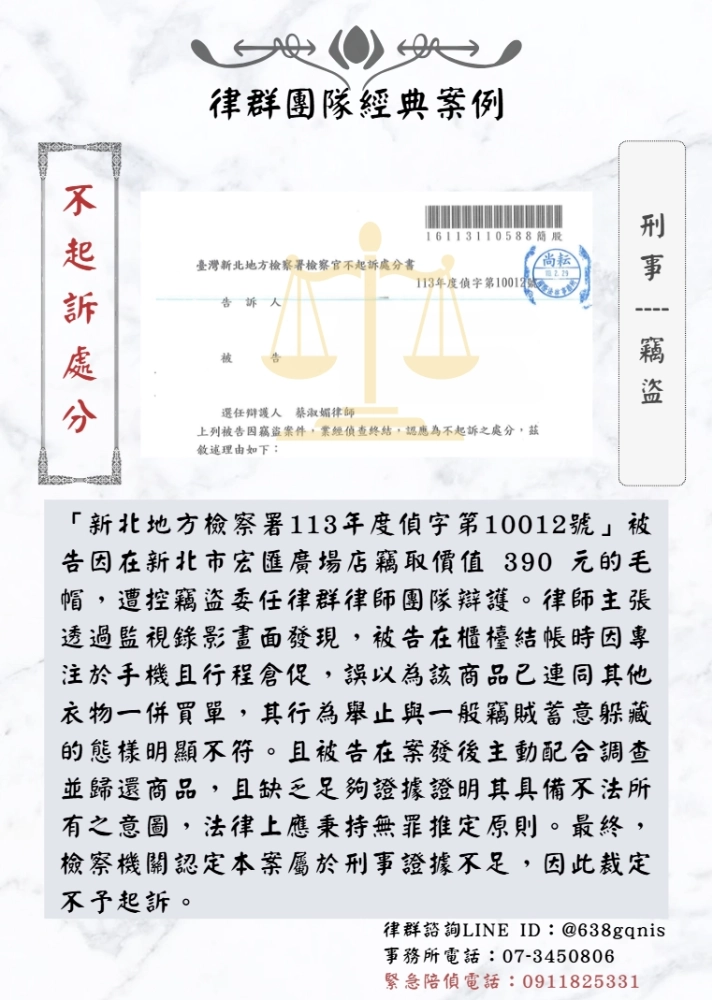 律群團隊經典案例
不起訴處分
刑事----竊盜
16113110588簡股
臺灣新北地方檢察署檢察官不起訴處分書
113年度偵字第10012號
尚耘
告訴人
被告
選任辯護人 蔡淑媚律師
上列被告因竊盜案件,業經偵查終結,認應為不起訴之處分,茲
敘述理由如下:
「新北地方檢察署113年度偵字第10012號」被
告因在新北市宏匯廣場店竊取價值 390 元的毛
帽,遭控竊盜委任律群律師團隊辯護。律師主張
透過監視錄影畫面發現,被告在櫃檯結帳時因專
注於手機且行程倉促,誤以為該商品已連同其他
衣物一併買單,其行為舉止與一般竊賊蓄意躲藏
的態樣明顯不符。且被告在案發後主動配合調查
並歸還商品,且缺乏足夠證據證明其具備不法所
有之意圖,法律上應秉持無罪推定原則。最終,
檢察機關認定本案屬於刑事證據不足,因此裁定
不予起訴。
律群諮詢LINE ID:@638gqnis
事務所電話:07-3450806
緊急陪偵電話:0911825331